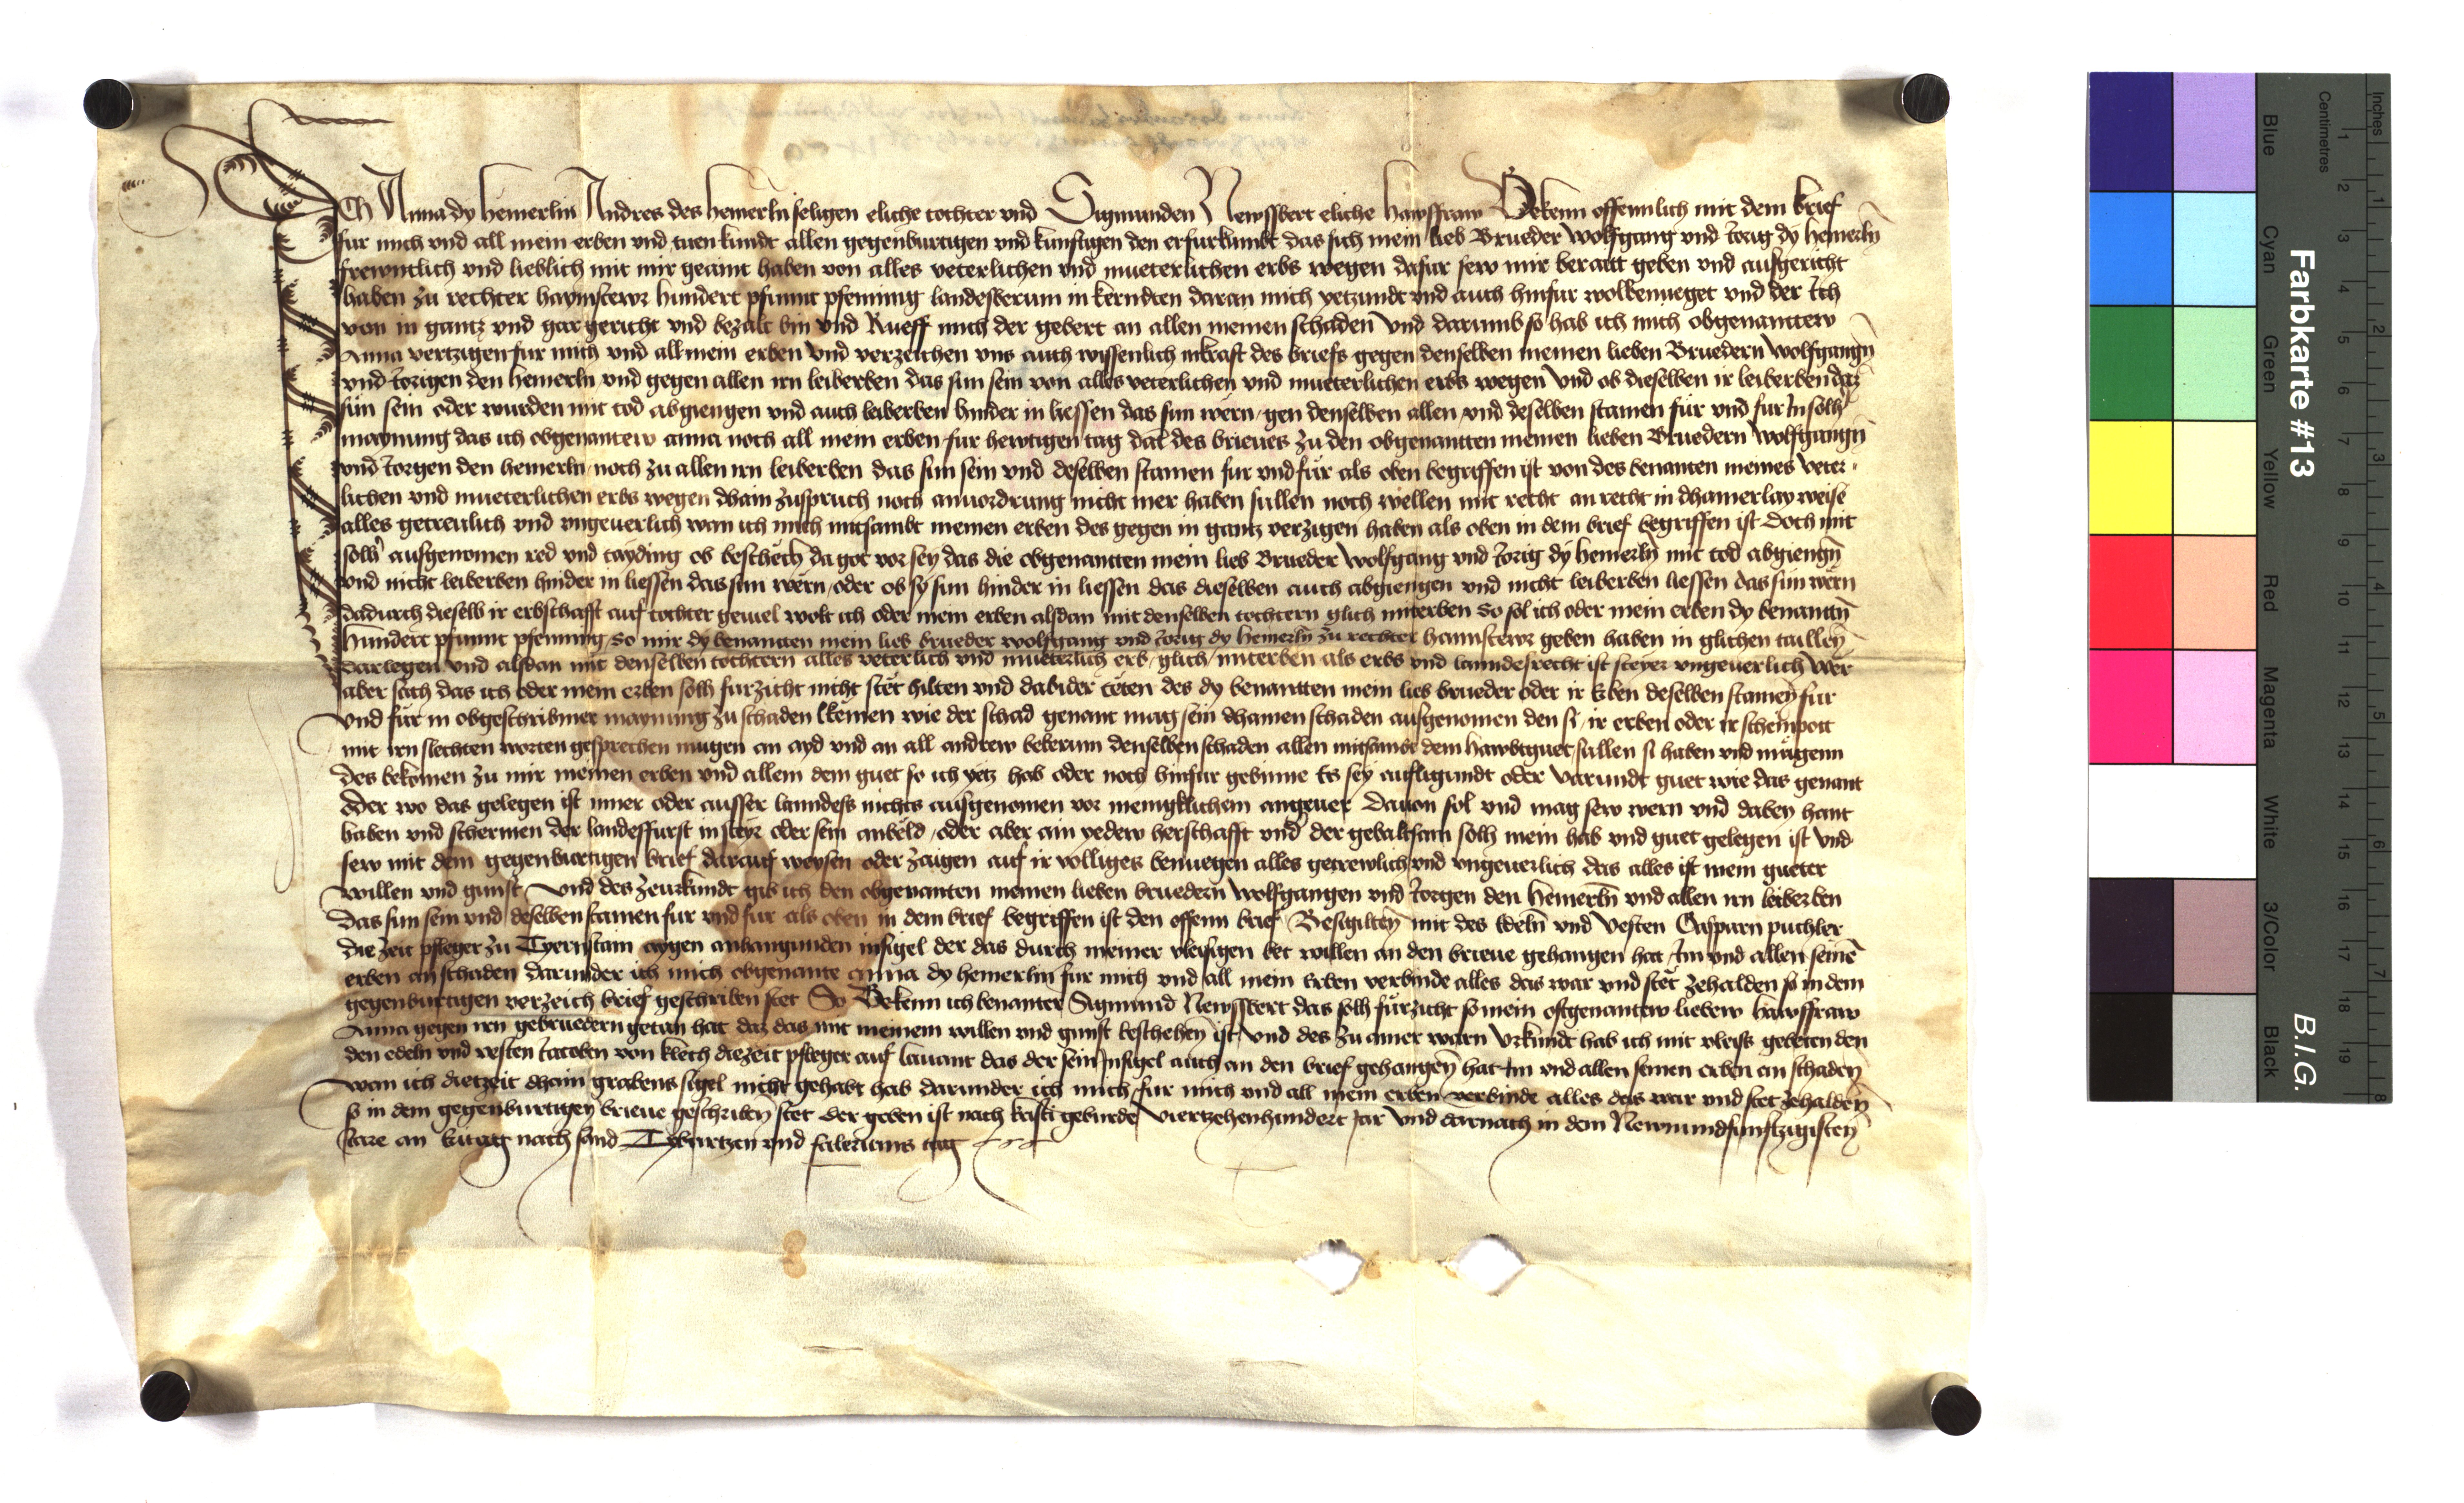 Ich Anna dy hemerlin Andres des hemerln seligen eliche tochter vnd Sigmunden Newssbert eliche hawsfraw Bekenn offennlich mit dem brief
fur mich vnd all mein erben vnd tuen kundt allen gegenburtigen vnd kunftigen den er furkumbt das sich mein lieb Brueder wolfgang vnd Jorig dy hemerln
frewntlich vnd lieblich mit mir geaint haben von alles veterlichen vnd mueterlichen erbs wegen dafur sew mir beraitt geben vnd ausgericht
haben zu rechter haymstewr hundert pfunnt pfenning landesberum in kerndten daran mich yetzundt vnd auch hinfur wolbenueget vnd der Ich
von in gantz vnd gar gericht vnd bezalt bin vnd Rueff mich der gebert an allen meinen schaden vnd darumb so hab ich mich obgenanttew
Anna vertzigen fur mich vnd all mein erben vnd verzeichen vns auch wissenlich inkraft des briefs gegen denselben meinen lieben Bruedern wolfgangn
vnd Jorigen den hemerln vnd gegen allen irn leiberben das sun sein von alles veterlichen vnd mueterlichen erbs wegen vnd ob dieselben ir leiberben daz
sun sein oder wurden mit tod abgiengen vnd auch leiberben hinder in liessen das sun wern gen denselben allen vnd deselben stamen für vnd fur In solh
maynung das ich obgenantew anna noch all mein erben fur hewtigen tag dat des brieues zu den obgenantten meinen lieben Bruedern wolfgangn
vnd Jorgen den hemerln noch zu allen irn leiberben das sun sein vnd deselben stamen fur vnd für als oben begriffen ist von des benanten meines veter
lichen vnd mueterlichen erbs wegen dhain zuspruch noch anuordrung nicht mer haben sullen noch wellen mit recht an recht in dhainerlay weise
alles getreulich vnd vngeuerlich wan ich mich mitsambt meinen erben des gegen in gantz verzigen haben als oben in dem brief begriffen ist Doch mit
solh ausgenomen red vnd tayding ob beschech da got vor sey das die obgenantten mein lieb Brueder wolfgang vnd Jorig dy hemerln mit tod abgiengn
vnd nicht leiberben hinder in liessen das sun wern oder ob sy sun hinder in liessen das dieselben auch abgiengen vnd nicht leiberben liessen das sun wern
dadurch dieselb ir erbschafft auf tochter geuiel wolt ich oder mein erben alsdan mit denselben tochtern glich miterben So sol ich oder mein erben dy benantn
hundert pfunnt pfenning so mir dy benantten mein lieb brueder wolfgang vnd Jorig dy hemerln zu rechter haimstewr geben haben in glichen taillen
darlegen vnd alsdan mit denselben tochtern alles veterlich vnd mueterlich erb glich miterben als erbs vnd lanndesrecht ist steyer vngeuerlich wer
aber sach das ich oder mein erben solh furzicht nicht stet hilten vnd dabider teten des dy benantten mein lieb brueder oder ir Erben deselben stamen fur
vnd fur in obgeschribner maynung zu schaden kemen wie der schad genant mag sein dhainen schaden ausgenomen den si ir erben oder ir scheinpott
mit irn slechten worten gesprechen mugen an ayd vnd an all andrew beberum denselben schaden allen mitsambt dem hawbtguet sullen si haben vnd mügenn
des bekomen zu mir meinen erben vnd allem dem guet so ich yetz hab oder noch hinfur gebinne Es sey aufligundt oder varundt guet wie das genant
Oder wo das gelegen ist inner oder ausser lanndess nichts ausgenomen vor meniglichem angeuer Dauon sol vnd mag sew wern vnd dabey hant
haben vnd schermen der landesfurst in steyr oder sein anbeld oder aber ain yedew herschafft vnd der gebaltsam solh mein hab vnd guet gelegen ist vnd
sew mit dem gegenburtigen brief darauf weysen oder zaigen auf ir volliges benuegen alles getrewlich vnd vngeuerlich das alles ist mein gueter
willen vnd gunst vnd des zeurkundt gib ich den obgenanten meinen lieben bruedern wolfgangen vnd Jorgen den hemerln vnd allen irn leiberben
das sun sein vnd deselben stamen fur vnd fur als oben in dem brief begriffen ist den offenn brief Besigilten mit des Edeln vnd vesten Casparn puchler
die zeit pfleger zu Tyernstain aygen anhangunden insigel der das durch meiner vleisigen bet willen an den brieue gehangen hat Im vnd allen seinen
erben an schaden darunder ich mich obgenante Anna dy hemerlin fur mich vnd all mein Erben verbinde alles das war vnd stet zehalden so in dem
gegenburtigen verzeich brief geschriben stet So Bekenn ich benanter Sigmund Newssbert das solh fürzicht so mein oftgenantew liebew hawsfraw
Anna gegen irn gebruedern getan hat daz das mit meinem willen vnd gunst beschehen ist vnd des zu ainer warn vrkundt hab ich mit vleiss gebeten den
den edeln vnd vesten Jacoben von diezeit pfleger auf lauant das der sein Insigel auch an den brief gehangen hat Im vnd allen seinen erben an schaden
wan ich dietzeit dhain grabens sigel nicht gehabt hab darunder ich mich fur mich vnd all mein erben verbinde alles das war vnd stet zehalden
so in dem gegenburtigen brieue geschriben stet der geben ist nach kristi geburde viertzehenhundert jar vnd darnach in dem Newnundfunftzigisten
Jare an nach sand Tyburtzen vnd tag
Farbkarte #13
B.I.G.
Inches
Centimetres
1 2 3 4 5 6 7 8
1 2 3 4 5 6 7 8 9 10 11 12 13 14 15 16 17 18 19
Blue
Cyan
Green
Yellow
Red
Magenta
White
3/Color
Black